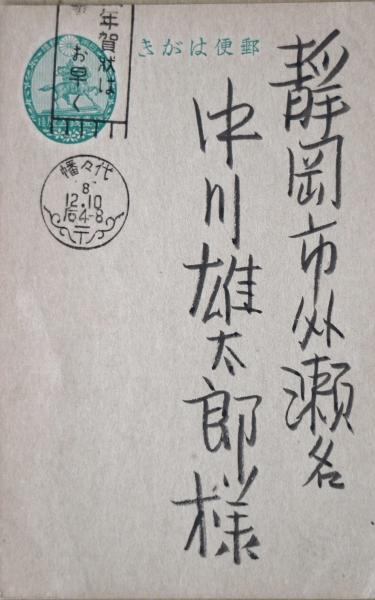 静岡市外瀬名
中川雄太郎様
きがは便郵
年賀状は
お早く
代々幡
8
12.10
后4-8